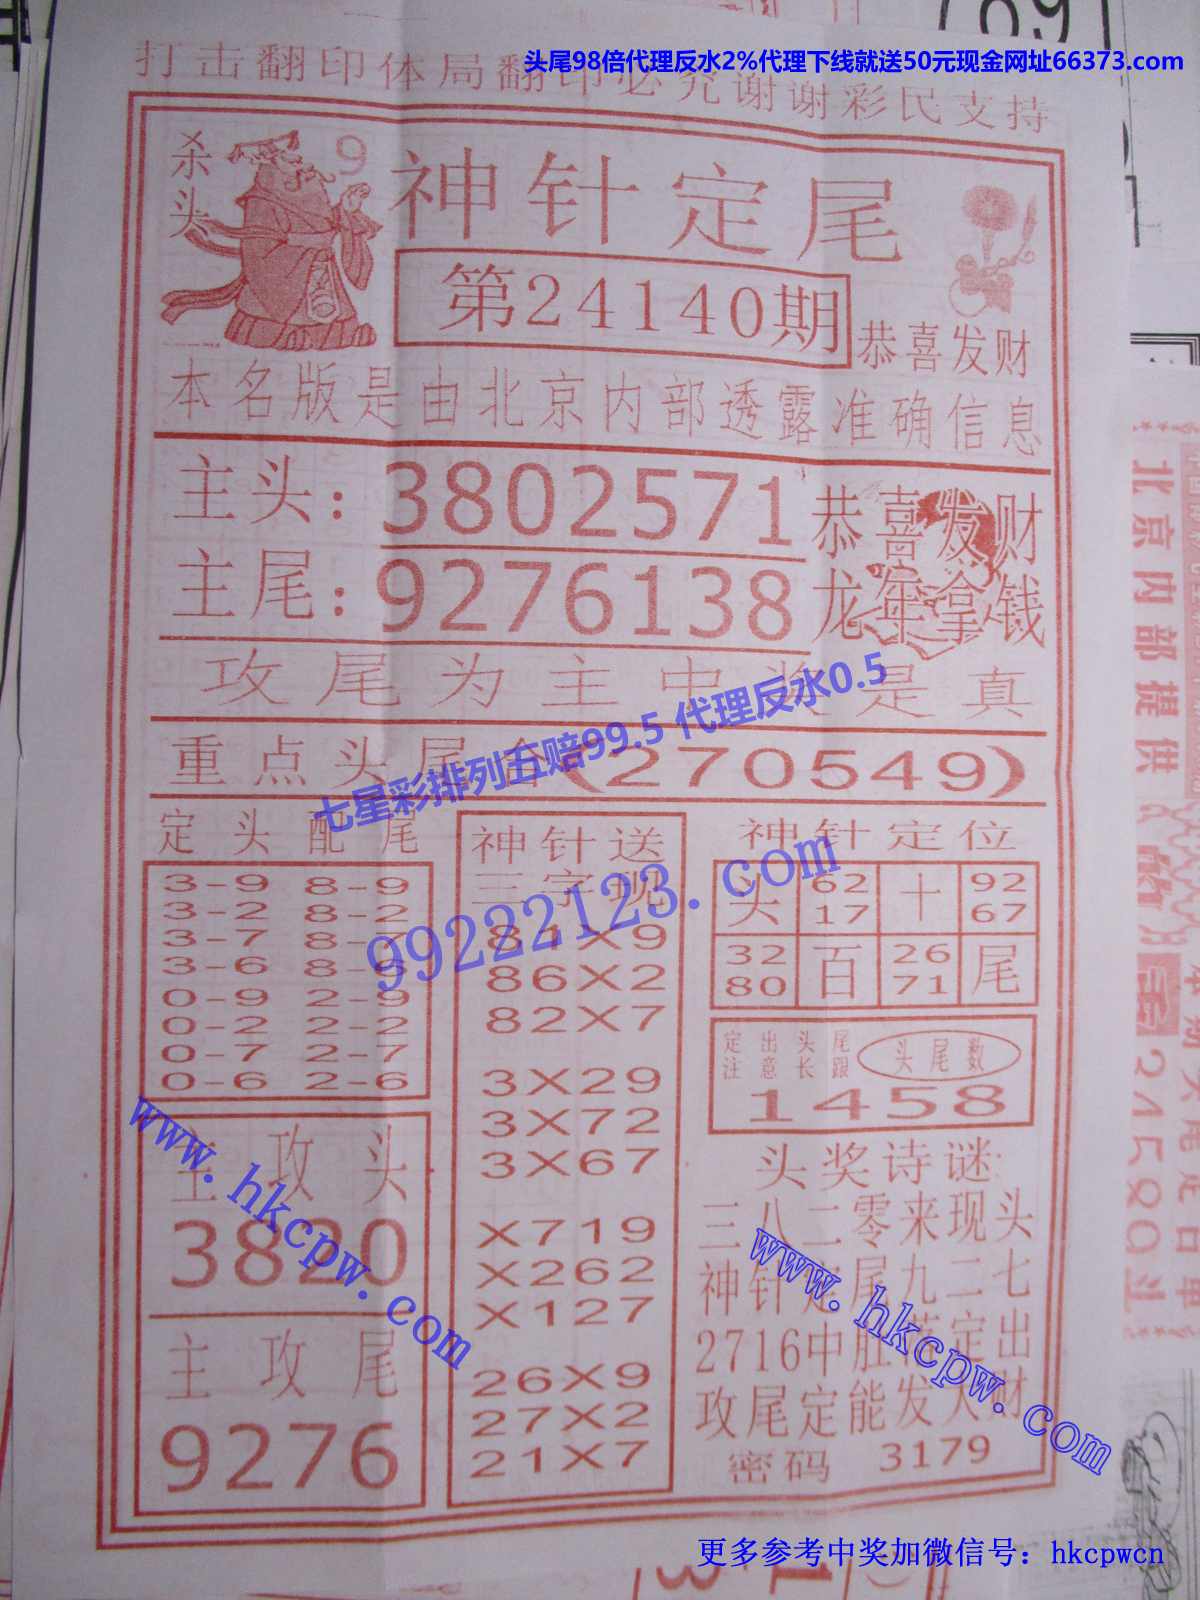 头尾98倍代理反水2%代理下线就送50元现金网址66373.com
打击翻印体局翻印必究谢谢彩民支持
杀头 9
神针定尾
第24140期
恭喜发财
本名版是由北京内部透露准确信息
主头:3802571
主尾:9276138
恭喜发财
龙年拿钱
攻尾为主中奖是真
七星彩排列五赔99.5 代理反水0.5
重点头尾合(270549)
定头配尾
3-9 8-9
3-2 8-2
3-7 8-7
3-6 8-6
0-9 2-9
0-2 2-2
0-7 2-7
0-6 2-6
主攻头
3820
主攻尾
9276
神针送
三字现
81X9
86X2
82X7
3X29
3X72
3X67
X719
X262
X127
26X9
27X2
21X7
99222123.com
神针定位
头 62 十 92
17 67
32 百 26 尾
80 71
定出头尾 头尾数
注意长跟
1458
头奖诗谜:
三八二零来现头
神针定尾九二七
2716中肚 定出
攻尾定能发大财
密码 3179
www.hkcpw.com
www.hkcpw.com
北京内部提供
更多参考中奖加微信号：hkcpwcn